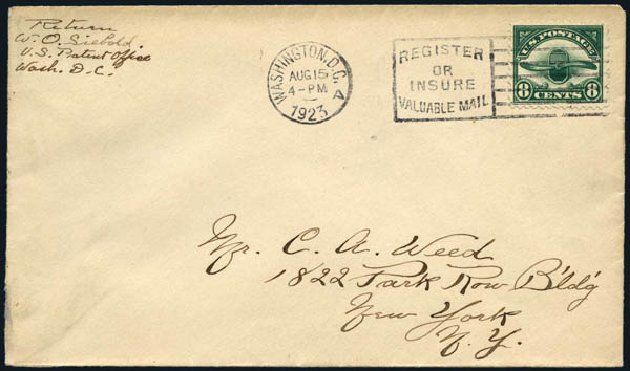 Return
W. O. Siebold
U.S. Patent Office
Wash. D.C.
WASHINGTON, D.C. A
AUG 15
4-PM
1923
REGISTER
OR
INSURE
VALUABLE MAIL
U.S. POSTAGE
8 CENTS 8
Mr. C. A. Weed
1822 Park Row Bldg
New York
N.Y.